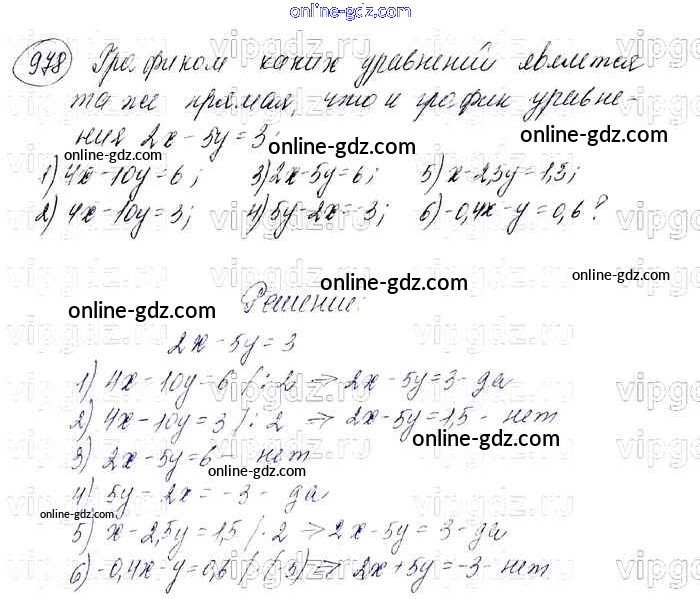 online-gdz.com
978 Графиком каких уравнений является
та же прямая, что и график уравне-
ния 2x - 5y = 3:
online-gdz.com
online-gdz.com
1) 4x - 10y = 6; 3) 2x - 5y = 6; 5) x - 2,5y = 1,5;
online-gdz.com
2) 4x - 10y = 3; 4) 5y - 2x = -3; 6) -0,4x - y = 0,6?
online-gdz.com
online-gdz.com
Решение:
online-gdz.com
online-gdz.com
2x - 5y = 3
1) 4x - 10y = 6 /:2 => 2x - 5y = 3 - да
2) 4x - 10y = 3 /:2 => 2x - 5y = 1,5 - нет
online-gdz.com
3) 2x - 5y = 6 - нет
online-gdz.com
4) 5y - 2x = -3 - да
online-gdz.com
5) x - 2,5y = 1,5 /·2 => 2x - 5y = 3 - да
online-gdz.com
6) -0,4x - y = 0,6 /·(-5) => 2x + 5y = -3 - нет